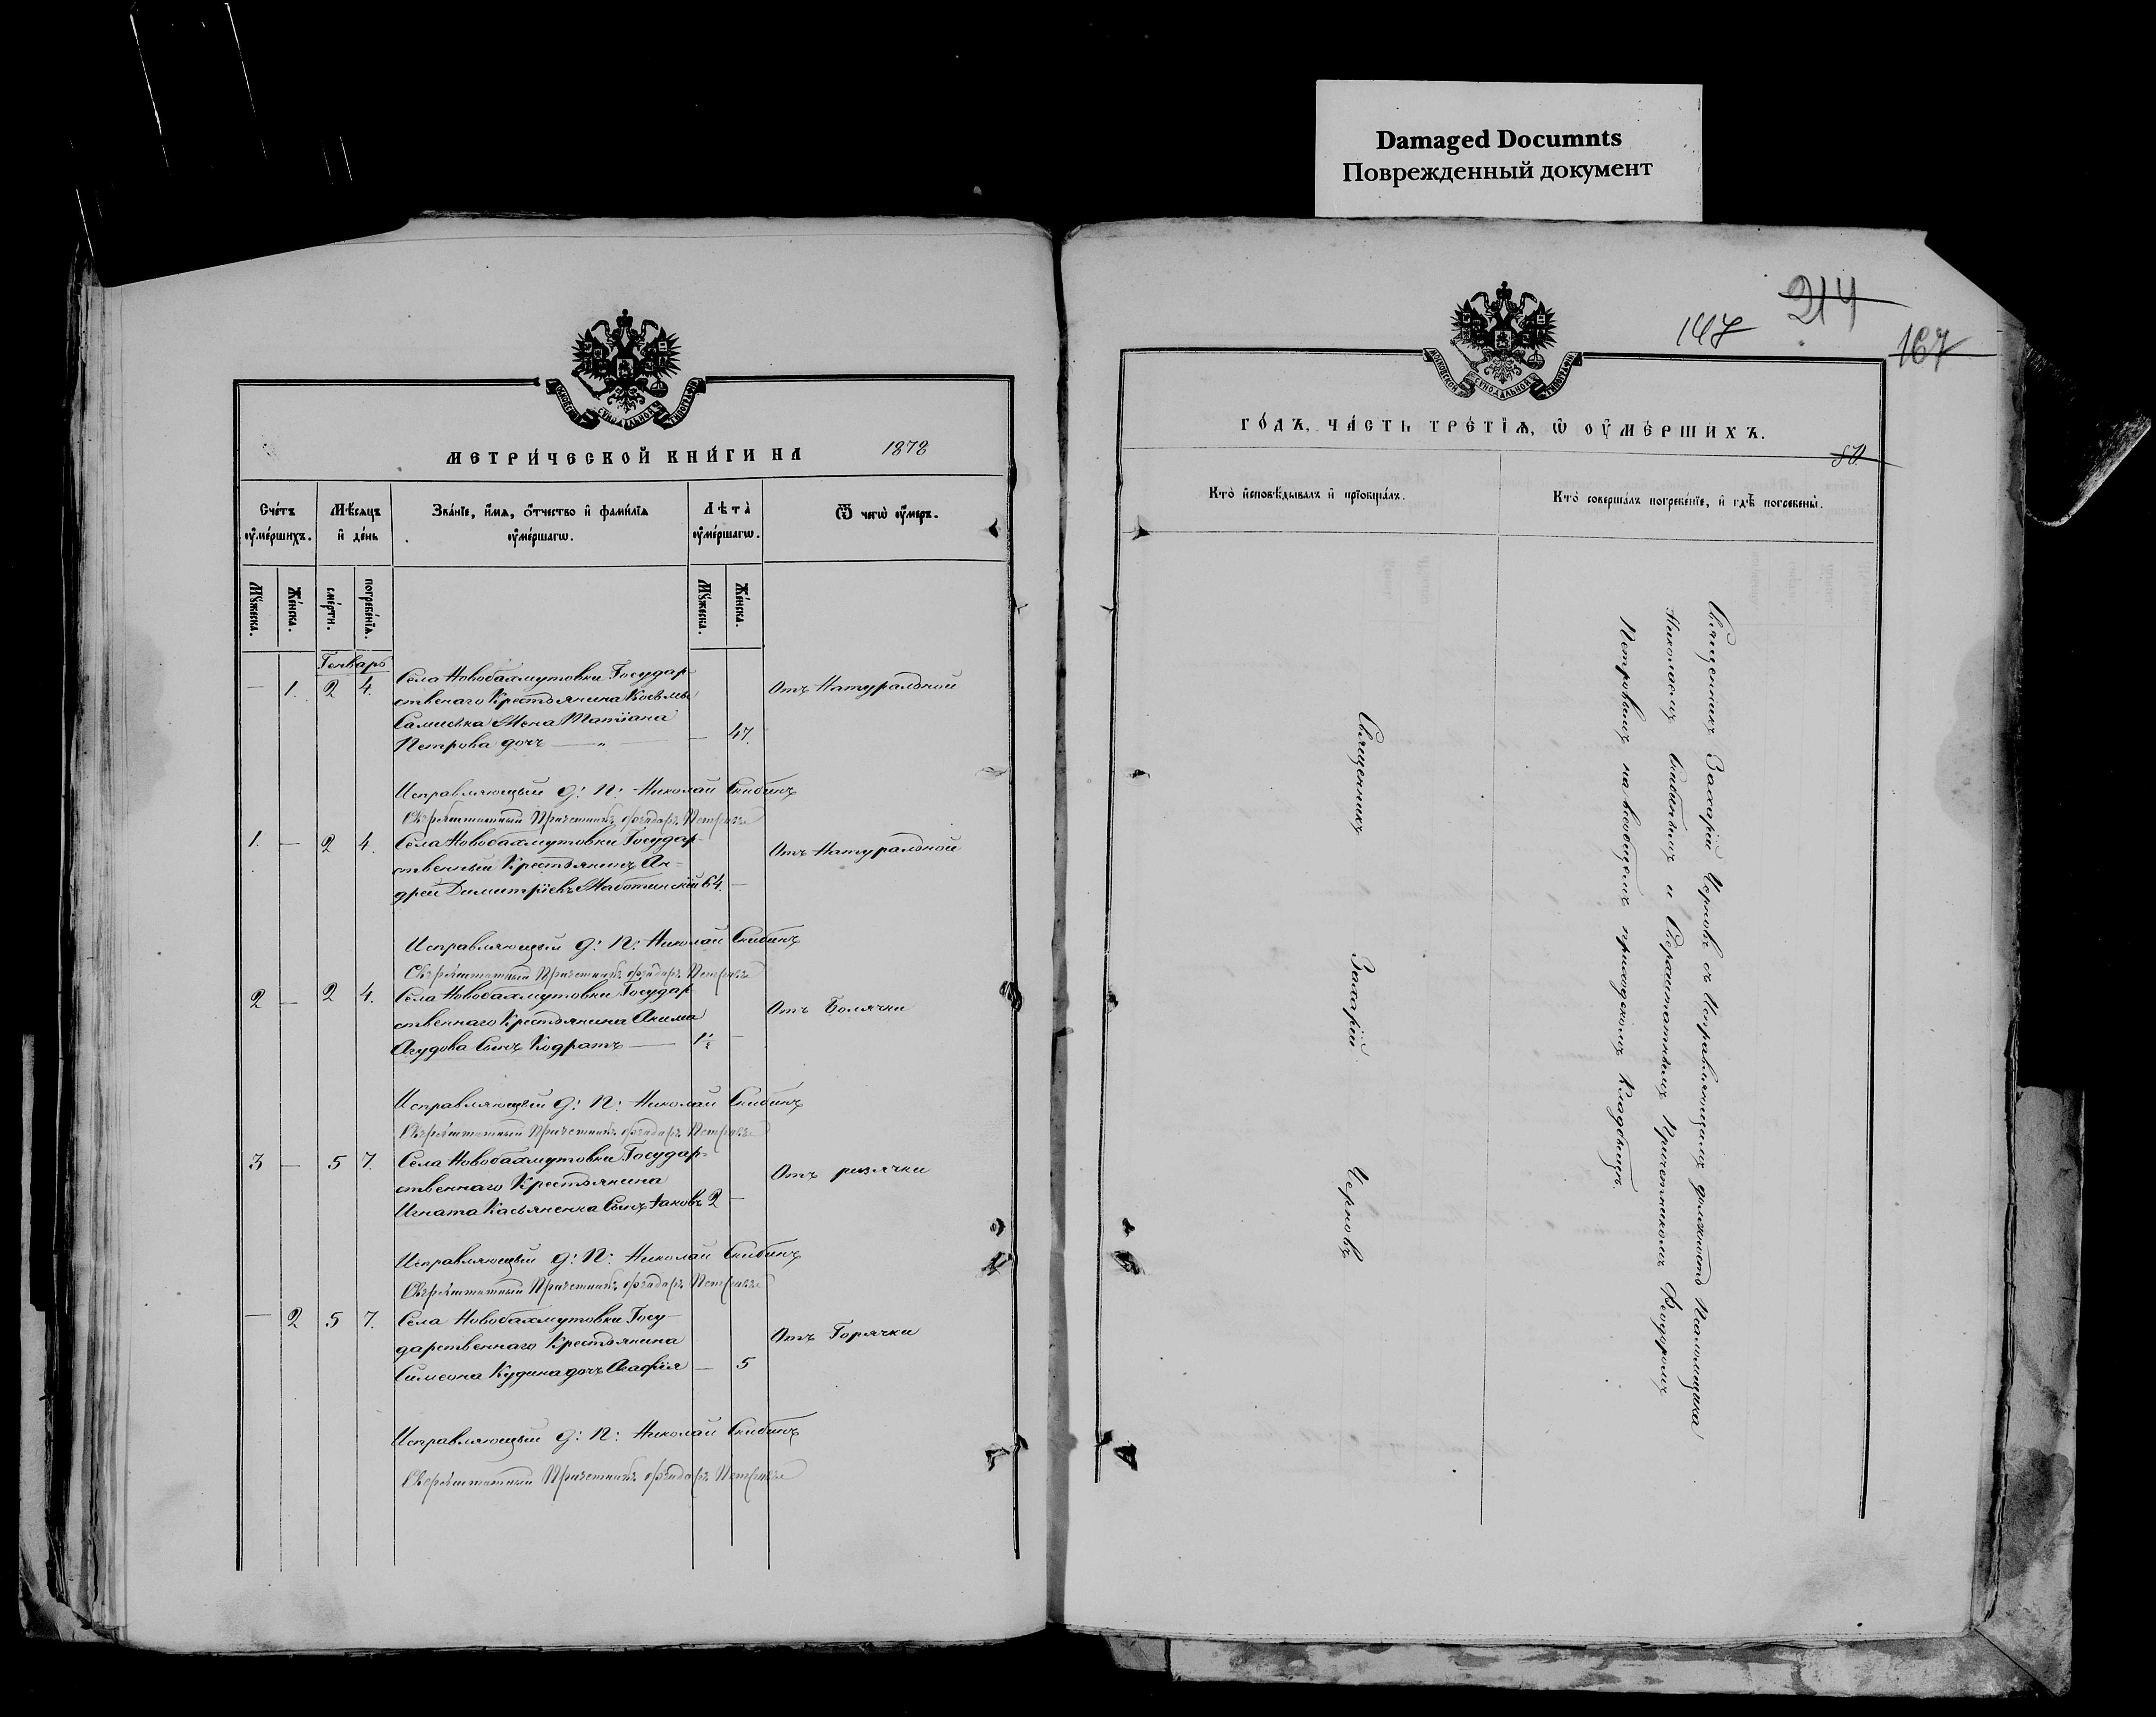 Damaged Documnts
Поврежденный документ
МОСКОВСКОЙ СѴНОДАЛЬНОЙ ТИПОГРАФІИ
МЕТРИ́ЧЕСКОЙ КНИ́ГИ НА 1878
Сче́тъ ᲂу҆ме́ршихъ.
Мѣ́сяцъ и҆ де́нь
Зва́нїе, и҆́мѧ, ѻ҆́тчество и҆ фами́лїѧ ᲂу҆ме́ршагѡ.
Лѣта̀ ᲂу҆ме́ршагѡ.
Ѿ чегѡ̀ ᲂу҆́меръ.
Мꙋ́жеска.
Же́нска.
сме́рти.
погребе́нїѧ.
Мꙋ́жеска.
Же́нска.
Генварь
— 1. 2 4. Села Новобахмутовки Государ-
ственаго Крестьянина Косьмы
жена Татіана
Петрова дочь — „ — — 47. Отъ Натуральной
Исправляющый д: П: Николай Скибинъ
Сверхштатный Причетникъ Ѳеодоръ Петровъ
1. — 2 4. Села Новобахмутовки Государ-
ственный Крестьянинъ Ан-
дрей Димитріевъ 64. — Отъ Натуральной
Исправляющый д: П: Николай Скибинъ
Сверхштатный Причетникъ Ѳеодоръ Петровъ
2 — 2 4. Села Новобахмутовки Государ-
ственнаго Крестьянина Акима
Сынъ Кодратъ — 1½ — Отъ Болячки
Исправляющый д: П: Николай Скибинъ
Сверхштатный Причетникъ Ѳеодоръ Петровъ
3 — 5 7. Села Новобахмутовки Государ-
ственнаго Крестьянина
Игната Касьяненка Сынъ Іаковъ 2 — Отъ
Исправляющый д: П: Николай Скибинъ
Сверхштатный Причетникъ Ѳеодоръ Петровъ
— 2 5 7. Села Новобахмутовки Госу-
дарственнаго Крестьянина
Симеона Кудина дочь Агафія — 5 Отъ Горячки
Исправляющый д: П: Николай Скибинъ
Сверхштатный Причетникъ Ѳеодоръ Петровъ
МОСКОВСКОЙ СѴНОДАЛЬНОЙ ТИПОГРАФІИ
147
214
167
ГО́ДЪ, ЧА́СТЬ ТРЕ́ТЇѦ, Ѡ҆ ОУ҆МЕ́РШИХЪ.
80.
Кто̀ и҆сповѣ́дывалъ и҆ прїобща́лъ.
Кто̀ соверша́лъ погребе́нїе, и҆ гдѣ̀ погребены̀.
Священникъ Захарій Черновъ
Священникъ Захарій Черновъ съ Исправляющимъ должность Псаломщика
Николаемъ Скибинымъ и Сверхштатнымъ Причетникомъ Ѳеодоромъ
Петровымъ на всеобщемъ приходскомъ Кладбищѣ.